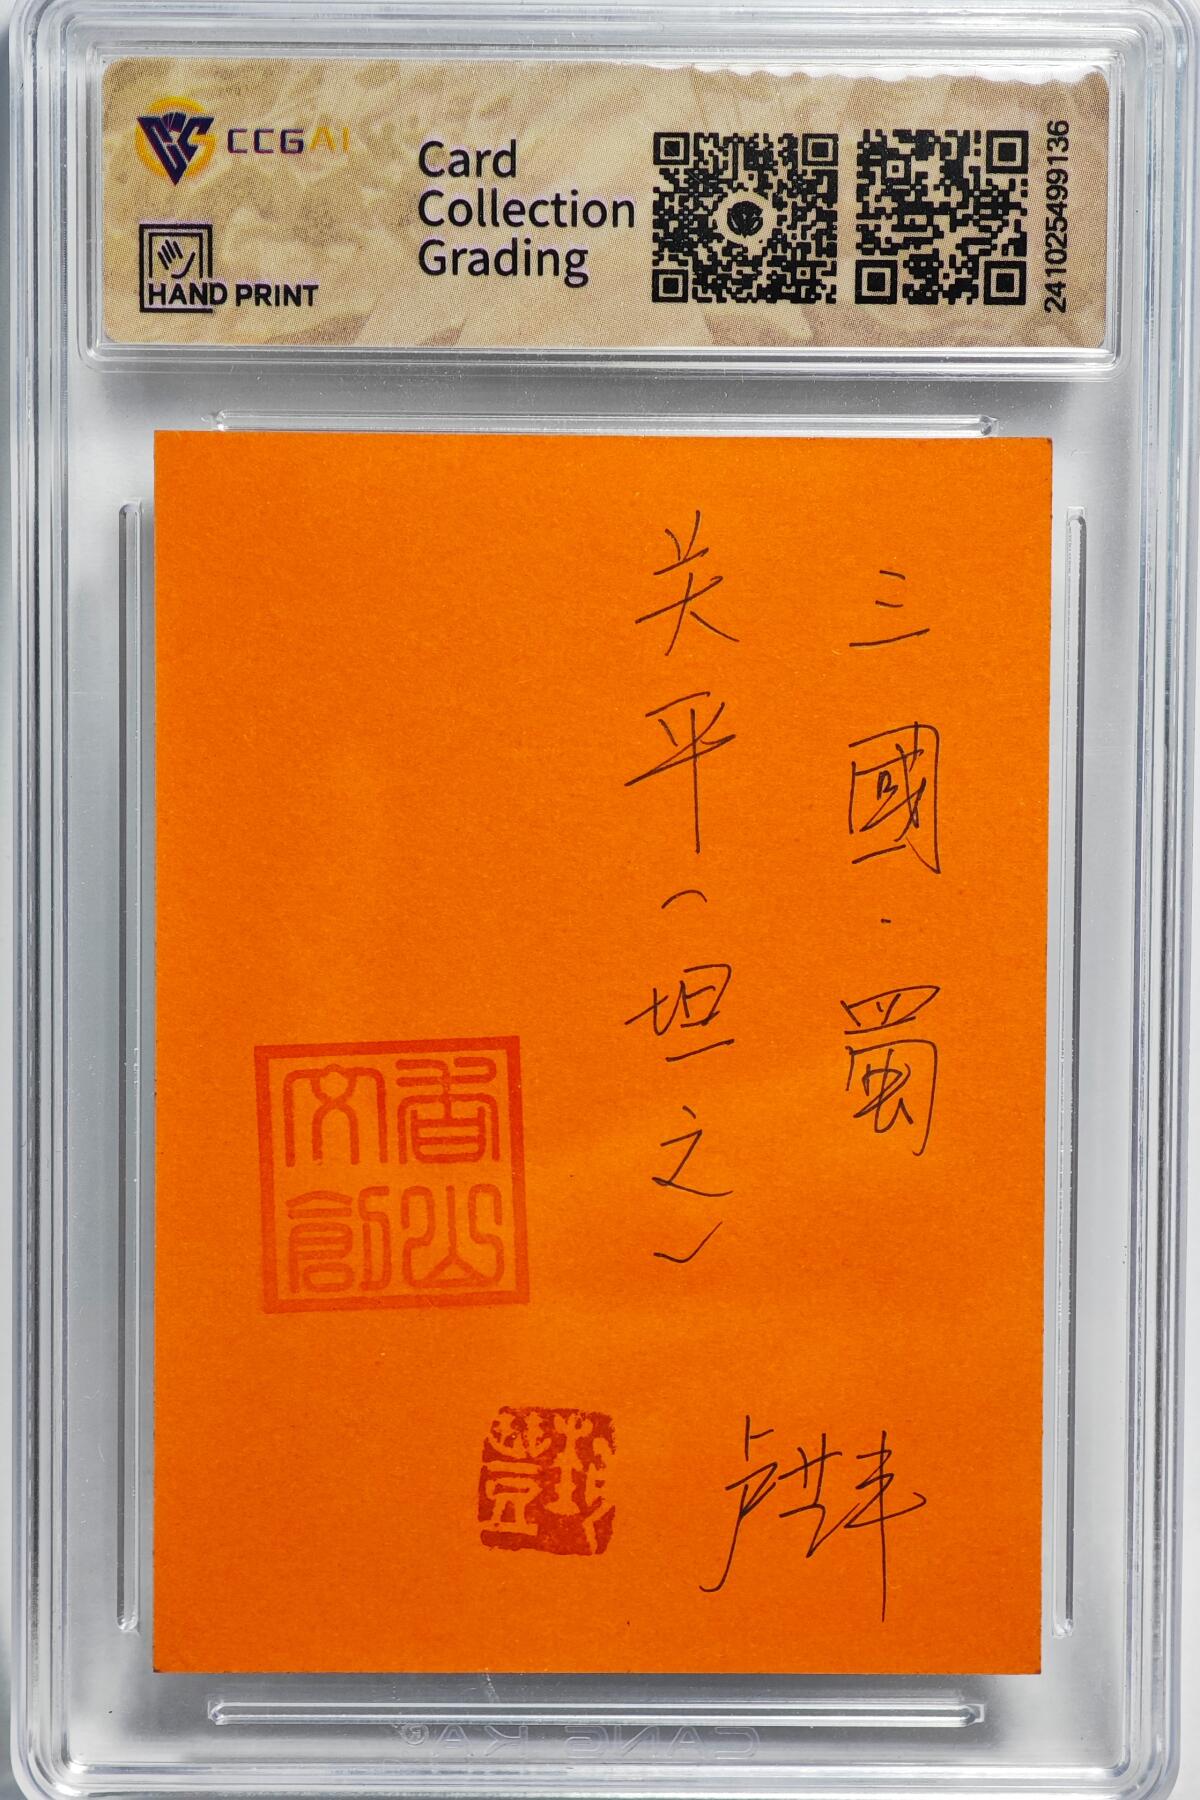 CCGAI
HAND PRINT
Card
Collection
Grading
241025499136
三國·蜀
关平(坦之)
香山
文創